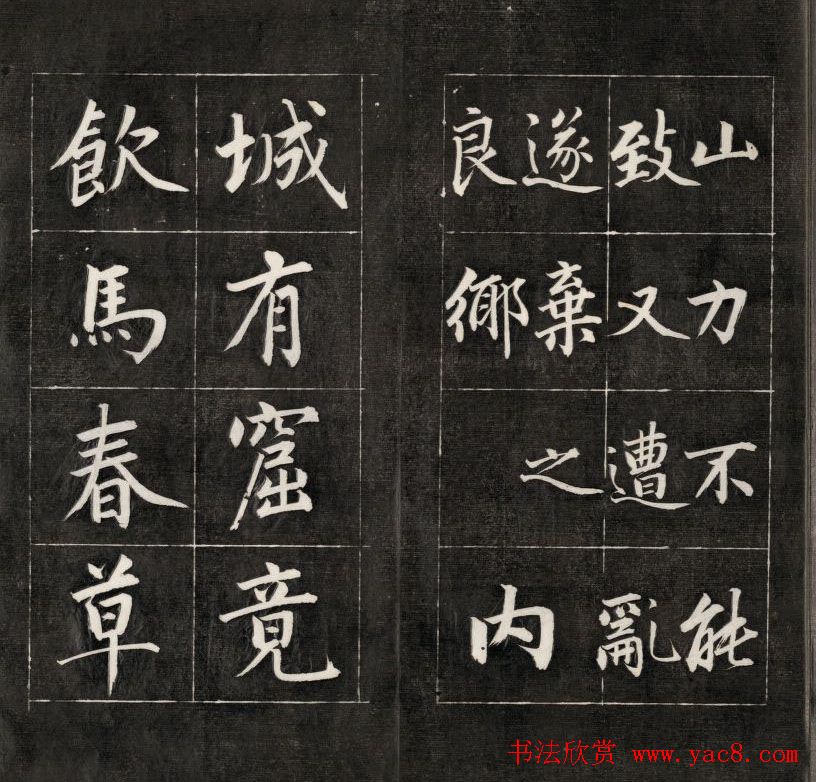 山力不能
致又遭亂
遂棄之
良鄉
内
城有窟竟
飲馬春草
书法欣赏 www.yac8.com